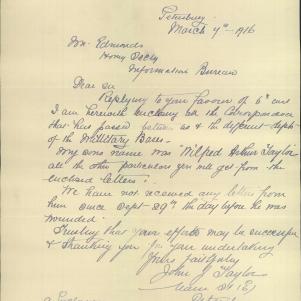 Petersburg
March 7th - 1916
Mr. Edmonds
Hony Secty
Information Bureau
Dear Sir
Replying to your favour of 6th inst
I am herewith enclosing all the Correspondence
that has passed between us & the different depts
of the Millitary Bases.
My sons name was "Wilfred Arthur Taylor"
all the other particulars you will get from the
enclosed letters.
We have not received any letters from
him since Sept 29th the day before he was
wounded.
Trusting that your efforts may be successful
& thanking you for your undertaking
Yours faithfully
John Taylor
Main St